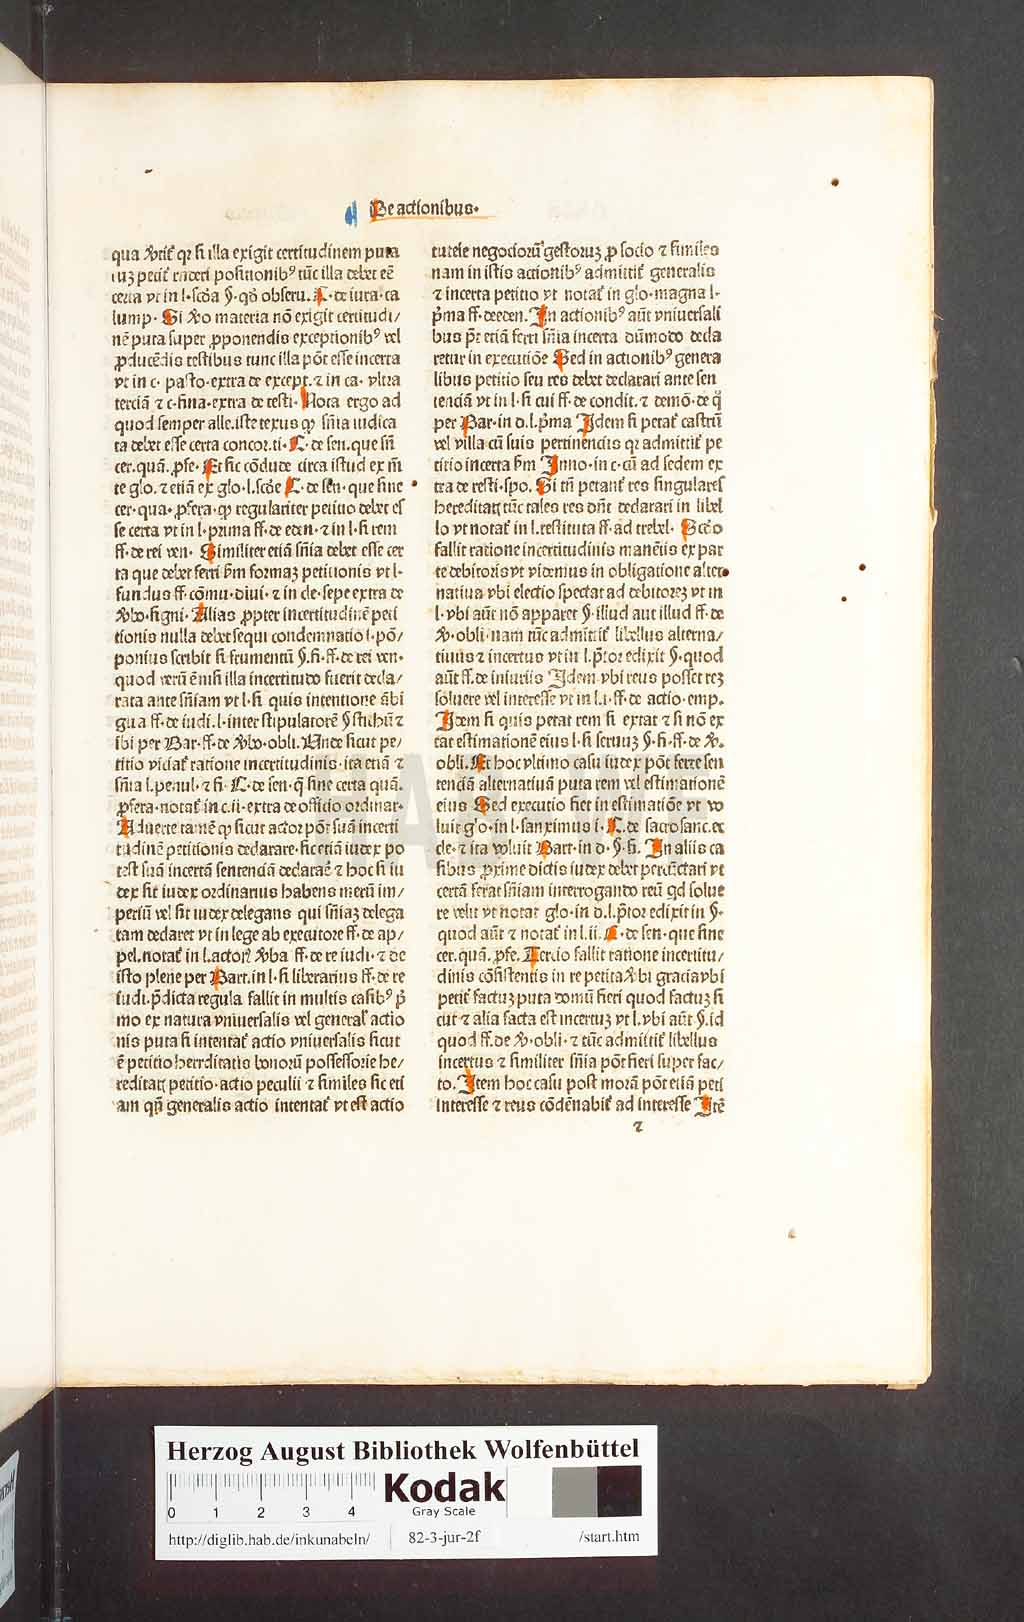 De actionibus.
qua v̄tit᷑ qꝛ si illa exigit certitudinem puta
petit᷑ rn̄deri positionibꝰ tūc illa debet eē
certa vt in l. scd̓a §. qd̓ obseru. C. de iura. ca
lump. Si v̓o materia nō exigit certitudi/
nē puta super ꝓponendis exceptionibꝰ vel
ꝓducēdis testibus tunc illa pōt esse incerta
vt in c. pasto. extra de except. ⁊ in ca. vltra
terciā ⁊ c. fina. extra de testi. Nota ergo ad
quod semper alle. iste texus ꝙ sn̄ia iudica
ta debet esse certa concor. ti. C. de sen. que sn̄
cer. quā. ꝓfe. Et sic cōdude circa istud ex m̄
te glo. ⁊ etiā ex glo. l. scd̓e C. de sen. que sine
cer. qua. ꝓfera. ꝙ regulariter petitio debet es
se certa vt in l. prima ff. de eden. ⁊ in l. si rem
ff. de rei ven. Similiter etiā sn̄ia debet esse cer
ta que debet ferri ẜm formaꝫ petitionis vt l.
fundus ff. cōmu. diui. ⁊ in cle. sepe extra de
v̓bo. signi. Alias ꝓpter incertitudinē peti
tionis nulla debet sequi condemnatio l. pō/
ponius scribit si frumentū §. fi. ff. de rei ven.
quod verū ē nisi illa incertitudo fuerit decla/
rata ante sn̄iam vt l. si quis intentione ābi
gua ff. de iudi. l. inter stipulatorē § stichū ⁊
ibi per Bar. ff. de v̓bo. obli. Unde sicut pe/
titio viciat᷑ ratione incertitudinis. ita etiā ⁊
sn̄ia l. penul. ⁊ fi. C. de sen. q̄ sine certa quā.
ꝓfera. notat᷑ in c. ii. extra de officio ordinar.
Aduerte tamē ꝙ sicut actor pōt suā incerti
tudinē petitionis declarare. sic etiā iudex po
test suā incertā sentenciā declarare ⁊ hoc si iu
dex sit iudex ordinarius habens merū im/
periū vel sit iudex delegans qui sn̄iaꝫ delega
tam declaret vt in lege ab executore ff. de ap/
pel. notat᷑ in l. actori v̓ba ff. de re iudi. ⁊ de
isto plene per Bart. in l. si liberarius ff. de re
iudi. p̄dicta regula fallit in multis casibꝰ p̓
mo ex natura vniuersalis vel general᷑ actio
nis puta si intentat᷑ actio vniuersalis sicut
ē petitio herrditatis bonorū possessorie he/
reditatꝭ petitio. actio peculii ⁊ similes sic eti
am qn̄ generalis actio intentat᷑ vt est actio
tutele negociorū gestoruꝫ ꝓ socio ⁊ similes
nam in istis actionibꝰ admittit᷑ generalis
⁊ incerta petitio vt notat᷑ in glo. magna l.
p̓ma ff. de eden. In actionibꝰ aūt vniuersali
bus pōt etiā ferri sn̄ia incerta dūmodo decla
retur in executiōe Sed in actionibꝰ genera
libus petitio seu res debet declarari ante sen
tenciā vt in l. si cui ff. de condit. ⁊ demō. de q̓
per Bar. in d. l. p̓ma Idem si petat᷑ castrū
vel villa cū suis pertinenciis qꝛ admittit᷑ pe
titio incerta ẜm Inno. in c. cū ad sedem ex
tra de resti. spo. Si tn̄ petant᷑ res singulares
hereditatꝭ tūc tales res dn̄t declarari in libel
lo vt notat᷑ in l. restituta ff. ad trebel. Scd̓o
fallit ratione incertitudinis manētis ex par
te debitoris vt videmus in obligatione alter
natiua vbi electio spectat ad debitoreꝫ vt in
l. vbi aūt nō apparet §. illud aut illud ff. de
v̓. obli. nam tūc admittit᷑ libellus alterna/
tiuus ⁊ incertus vt in l. p̓tor edixit §. quod
aūt ff. de iniuriis Idem vbi reus posset reꝫ
soluere vel interesse vt in l. i. ff. de actio. emp.
Idem si quis petat rem si extat ⁊ si nō ex
tat estimationē eius l. si seruuꝫ §. fi. ff. de v̓.
obli. Et hoc vltimo casu iudex pōt ferre sen
tenciā alternatiuā puta rem vel estimationē
eius Sed executio fiet in estimatiōe vt vo
luit glo. in l. sanximus l. C. de sacrosanc. ec
cle. ⁊ ita voluit Bart. in d. §. fi. In aliis ca
sibus ꝓxime dictis iudex debet percūctari vt
certā ferat sn̄iam interrogando reū qd̓ solue
re velit vt notat glo. in d. l. p̓tor edixit in §.
quod aūt ⁊ notat᷑ in l. ii. C. de sen. que sine
cer. quā. ꝓfe. Tercio fallit ratione incertitu/
dinis cōsistentis in re petita v̓bi gracia vbi
petit᷑ factuꝫ puta domū fieri quod factuꝫ si
cut ⁊ alia facta est incertuꝫ vt l. vbi aūt §. id
quod ff. de v̓. obli. ⁊ tūc admittit᷑ libellus
incertus ⁊ similiter sn̄ia pōt fieri super fac/
to. Item hoc casu post morā pōt etiā peti
interesse ⁊ reus cōdēnabit᷑ ad interesse Itē
⁊
HAB · WF
Herzog August Bibliothek Wolfenbüttel
0 1 2 3 4
Kodak
Gray Scale
http://diglib.hab.de/inkunabeln/ 82-3-jur-2f /start.htm